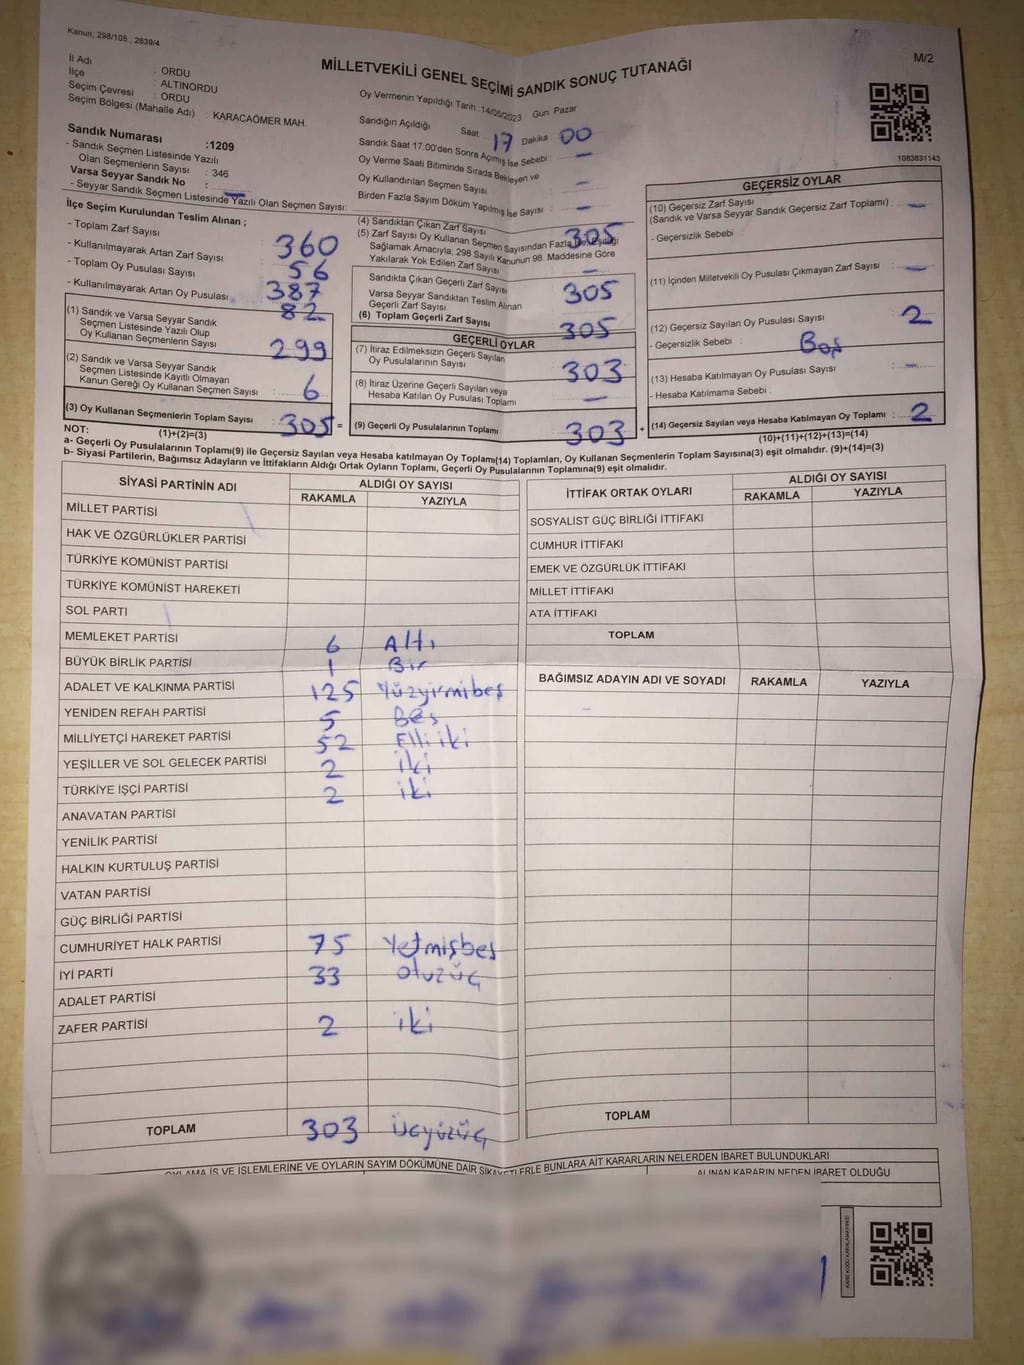 Kanun; 298/105 , 2839/4
M/2
MİLLETVEKİLİ GENEL SEÇİMİ SANDIK SONUÇ TUTANAĞI
İl Adı : ORDU
İlçe : ALTINORDU
Seçim Çevresi : ORDU
Seçim Bölgesi (Mahalle Adı) : KARACAÖMER MAH.
Sandık Numarası :1209
- Sandık Seçmen Listesinde Yazılı
Olan Seçmenlerin Sayısı : 346
Varsa Seyyar Sandık No : —
- Seyyar Sandık Seçmen Listesinde Yazılı Olan Seçmen Sayısı:
Oy Vermenin Yapıldığı Tarih :14/05/2023 Gun: Pazar
Sandığın Açıldığı Saat : 17 Dakika : 00
Sandık Saat 17:00'den Sonra Açmış İse Sebebi : —
Oy Verme Saati Bitiminde Sırada Bekleyen ve
Oy Kullandırılan Seçmen Sayısı : —
Birden Fazla Sayım Döküm Yapılmış İse Sayısı : —
1083831143
İlçe Seçim Kurulundan Teslim Alınan ;
- Toplam Zarf Sayısı : 360
- Kullanılmayarak Artan Zarf Sayısı : 56
- Toplam Oy Pusulası Sayısı : 387
- Kullanılmayarak Artan Oy Pusulası : 82
(1) Sandık ve Varsa Seyyar Sandık
Seçmen Listesinde Yazılı Olup
Oy Kullanan Seçmenlerin Sayısı : 299
(2) Sandık ve Varsa Seyyar Sandık
Seçmen Listesinde Kayıtlı Olmayan
Kanun Gereği Oy Kullanan Seçmen Sayısı : 6
(3) Oy Kullanan Seçmenlerin Toplam Sayısı : 305 =
(1)+(2)=(3)
(4) Sandıktan Çıkan Zarf Sayısı : 305
(5) Zarf Sayısı Oy Kullanan Seçmen Sayısından Fazla İse, Eşitliği
Sağlamak Amacıyla, 298 Sayılı Kanunun 98. Maddesine Göre
Yakılarak Yok Edilen Zarf Sayısı : —
Sandıkta Çıkan Geçerli Zarf Sayısı : 305
Varsa Seyyar Sandıktan Teslim Alınan
Geçerli Zarf Sayısı
(6) Toplam Geçerli Zarf Sayısı : 305
GEÇERLİ OYLAR
(7) İtiraz Edilmeksizin Geçerli Sayılan
Oy Pusulalarının Sayısı : 303
(8) İtiraz Üzerine Geçerli Sayılan veya
Hesaba Katılan Oy Pusulası Toplamı : —
(9) Geçerli Oy Pusulalarının Toplamı : 303 +
GEÇERSİZ OYLAR
(10) Geçersiz Zarf Sayısı
(Sandık ve Varsa Seyyar Sandık Geçersiz Zarf Toplamı) : —
- Geçersizlik Sebebi :
(11) İçinden Milletvekili Oy Pusulası Çıkmayan Zarf Sayısı : —
(12) Geçersiz Sayılan Oy Pusulası Sayısı : 2
- Geçersizlik Sebebi : Boş
(13) Hesaba Katılmayan Oy Pusulası Sayısı : —
- Hesaba Katılmama Sebebi :
(14) Geçersiz Sayılan veya Hesaba Katılmayan Oy Toplamı : 2
(10)+(11)+(12)+(13)=(14)
NOT:
a- Geçerli Oy Pusulalarının Toplamı(9) ile Geçersiz Sayılan veya Hesaba Katılmayan Oy Toplamı(14) Toplamları, Oy Kullanan Seçmenlerin Toplam Sayısına(3) eşit olmalıdır. (9)+(14)=(3)
b- Siyasi Partilerin, Bağımsız Adayların ve İttifakların Aldığı Ortak Oyların Toplamı, Geçerli Oy Pusulalarının Toplamına(9) eşit olmalıdır.
SİYASİ PARTİNİN ADI ALDIĞI OY SAYISI
RAKAMLA YAZIYLA
MİLLET PARTİSİ
HAK VE ÖZGÜRLÜKLER PARTİSİ
TÜRKİYE KOMÜNİST PARTİSİ
TÜRKİYE KOMÜNİST HAREKETİ
SOL PARTİ
MEMLEKET PARTİSİ 6 Altı
BÜYÜK BİRLİK PARTİSİ 1 Bir
ADALET VE KALKINMA PARTİSİ 125 Yüzyirmibeş
YENİDEN REFAH PARTİSİ 5 Beş
MİLLİYETÇİ HAREKET PARTİSİ 52 Elli iki
YEŞİLLER VE SOL GELECEK PARTİSİ 2 iki
TÜRKİYE İŞÇİ PARTİSİ 2 iki
ANAVATAN PARTİSİ
YENİLİK PARTİSİ
HALKIN KURTULUŞ PARTİSİ
VATAN PARTİSİ
GÜÇ BİRLİĞİ PARTİSİ
CUMHURİYET HALK PARTİSİ 75 Yetmişbeş
İYİ PARTİ 33 otuzüç
ADALET PARTİSİ
ZAFER PARTİSİ 2 iki
TOPLAM 303 üçyüzüç
İTTİFAK ORTAK OYLARI ALDIĞI OY SAYISI
RAKAMLA YAZIYLA
SOSYALİST GÜÇ BİRLİĞİ İTTİFAKI
CUMHUR İTTİFAKI
EMEK VE ÖZGÜRLÜK İTTİFAKI
MİLLET İTTİFAKI
ATA İTTİFAKI
TOPLAM
BAĞIMSIZ ADAYIN ADI VE SOYADI RAKAMLA YAZIYLA
TOPLAM
OYLAMA İŞ VE İŞLEMLERİNE VE OYLARIN SAYIM DÖKÜMÜNE DAİR ŞİKAYETLERLE BUNLARA AİT KARARLARIN NELERDEN İBARET BULUNDUKLARI
ALINAN KARARIN NEDEN İBARET OLDUĞU
KARE KODU KARALAMAYINIZ!